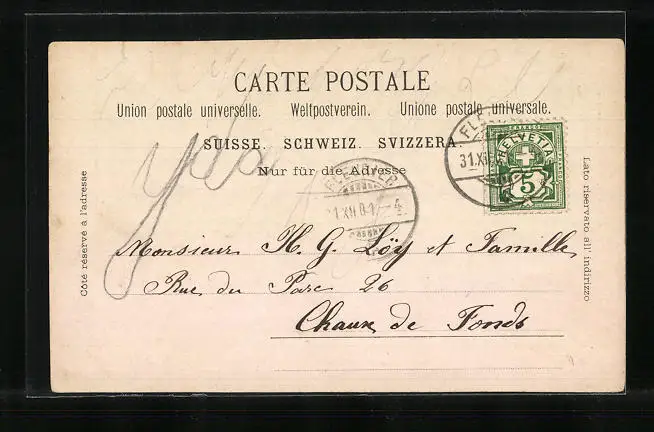 CARTE POSTALE
Union postale universelle. Weltpostverein. Unione postale universale.
SUISSE. SCHWEIZ. SVIZZERA.
Nur für die Adresse
Côté réservé à l'adresse
Lato riservato all'indirizzo
31.XII
FRANCO
HELVETIA
5
XII 01 - 4
Monsieur H. G. Löy et Famille
Rue du Parc 26
Chaux de Fonds